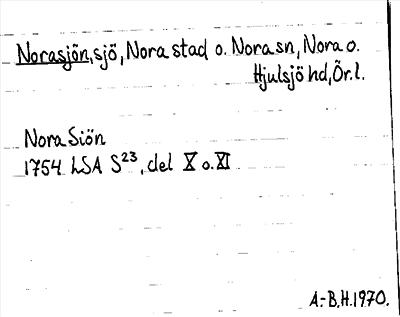 Norasjön, sjö, Nora stad o. Nora sn, Nora o.
Hjulsjö hd, Ör. l.
Nora Siön
1754 LSA S23, del X o. XI
A.-B.H. 1970.